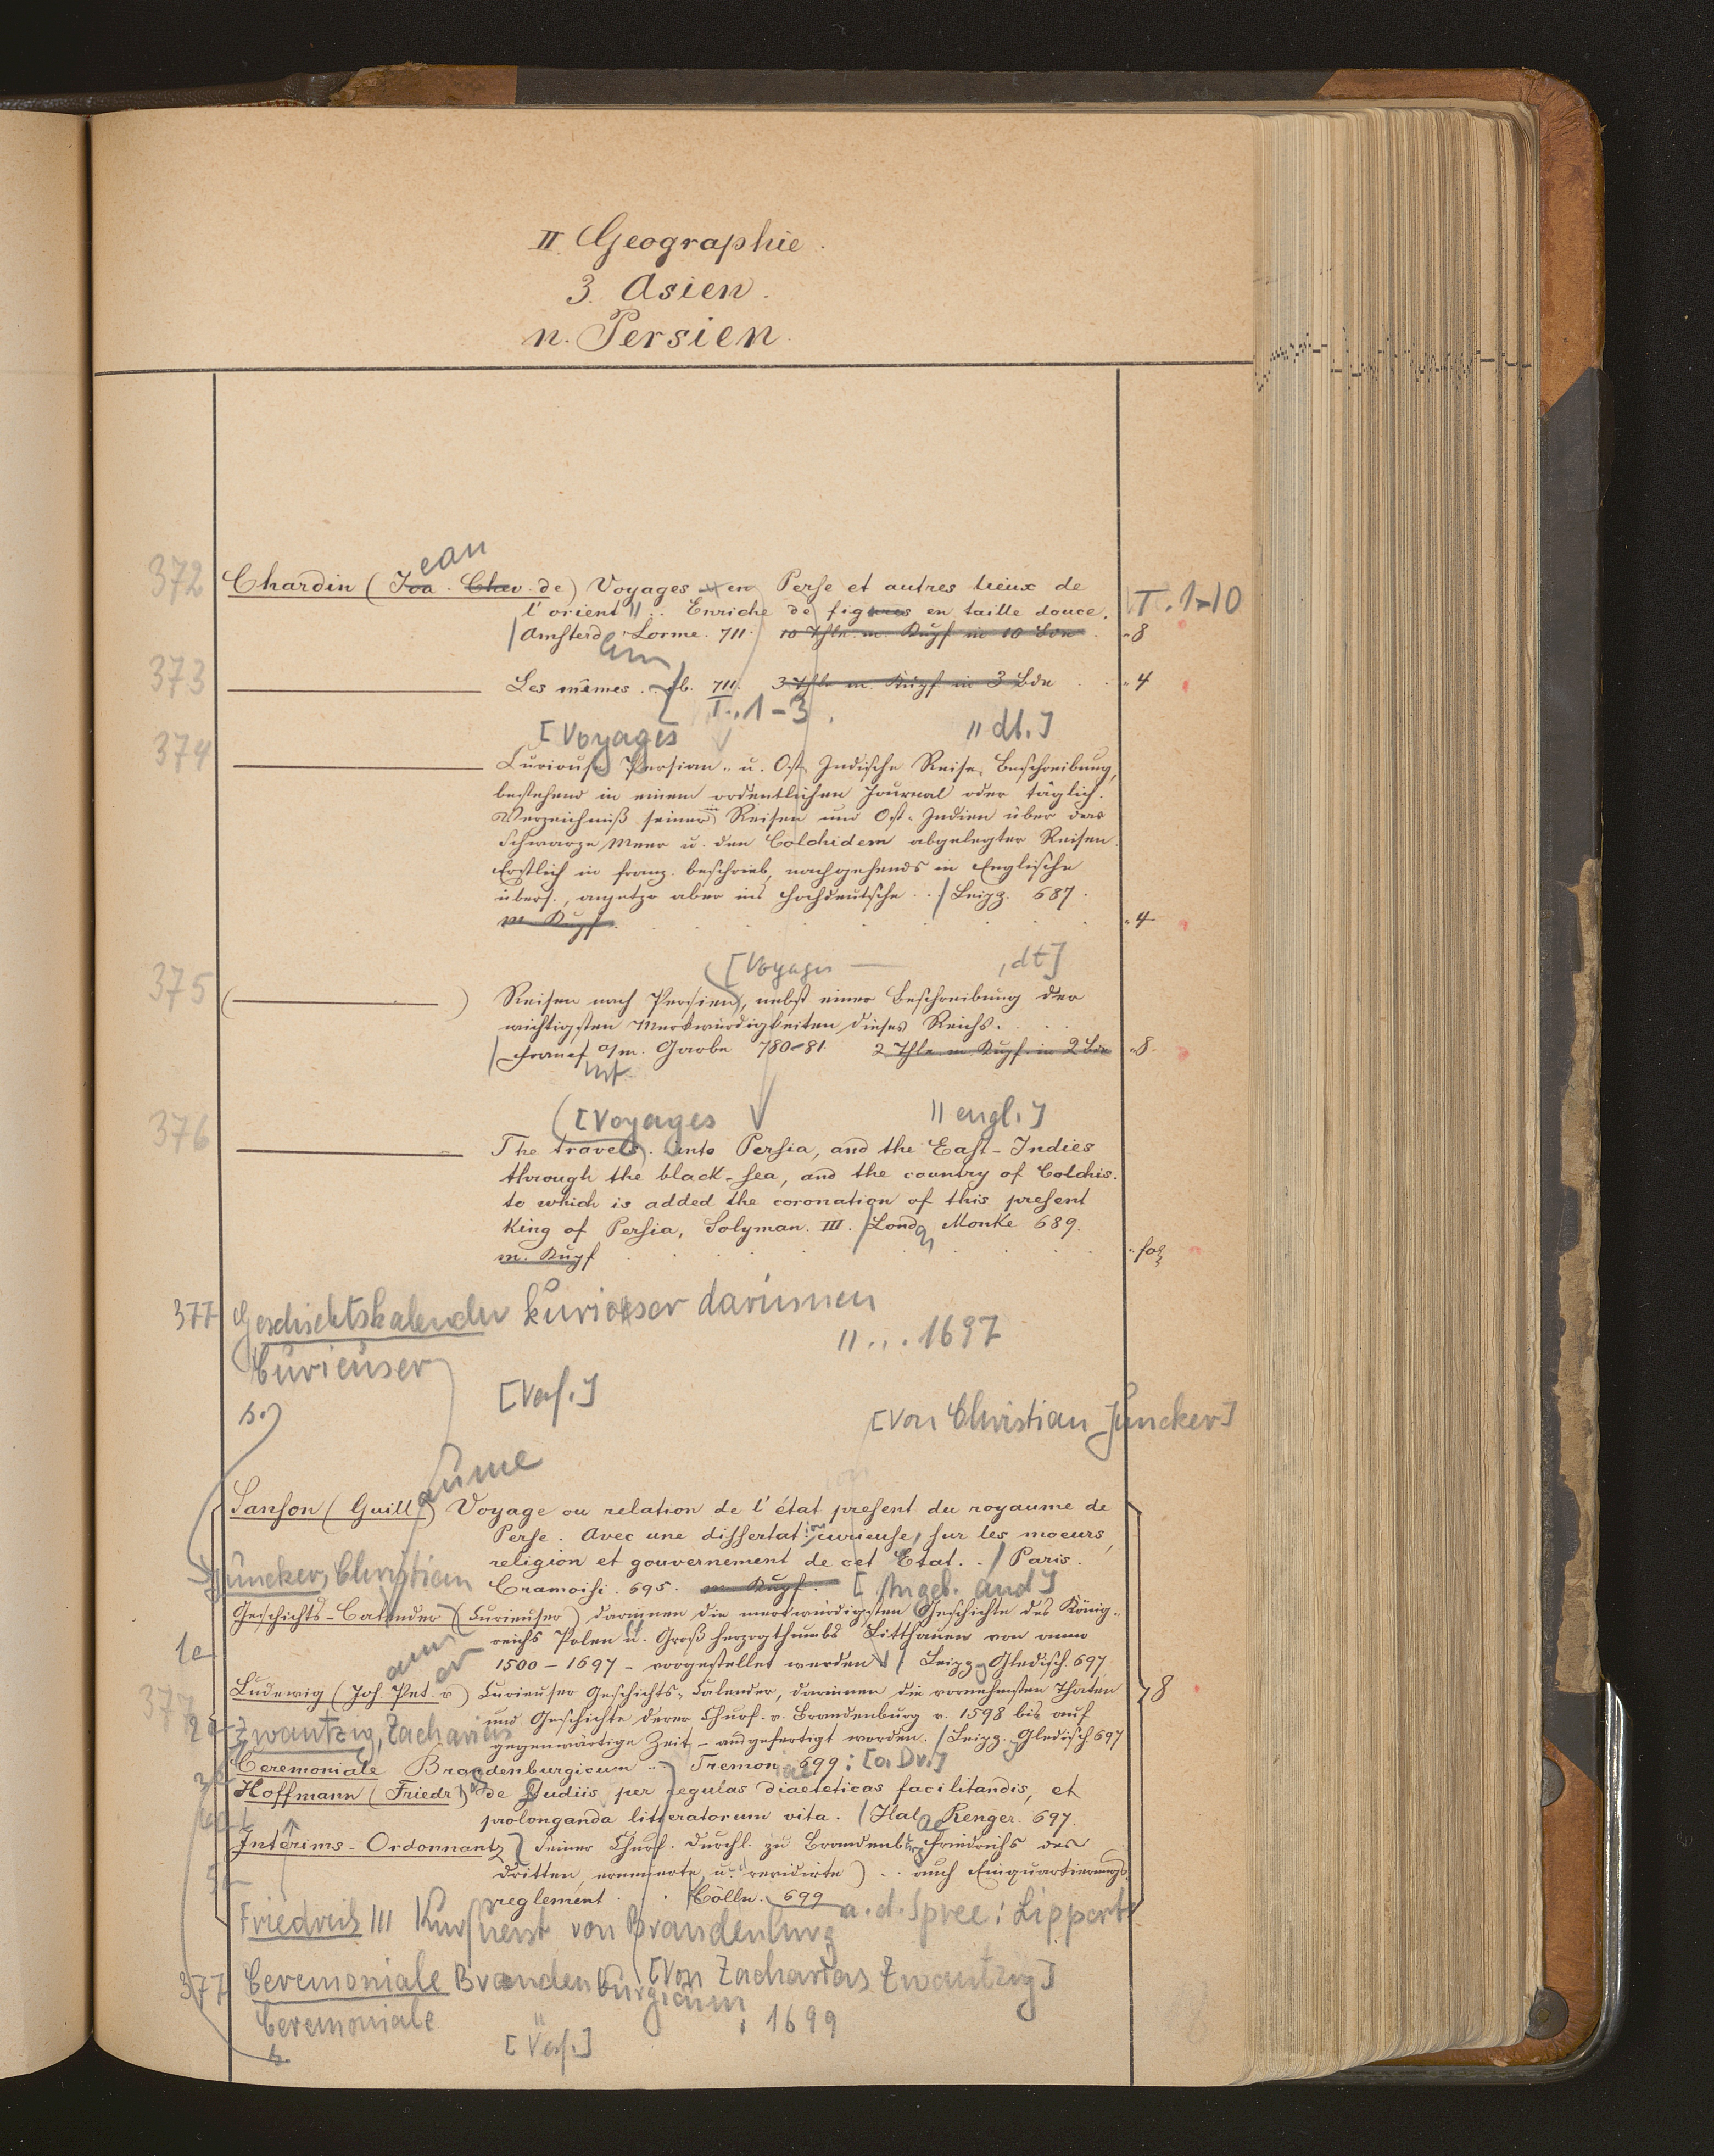 II Geographie.
3. Asien.
n. Persien.
372 Chardin (Joa. Chev. de) Voyages en Perse et autres lieux de
ean
l'orient // .. Enriché de figures en taille douce.
T. 1-10
Amsterd. Lorme. 711. 10 Thle. m. Kupf in 10 Bdn . 8
am
373 Les mêmes. ib. 711. 3 Thle m. Kupf in 3 Bdn . 4
T. 1-3
[Voyages // dt.]
374 Curiouse Persian- u. Ost-Indische Reise-Beschreibung,
bestehend in einem ordentlichen Journal oder täglich.
Verzeichniß seiner in Reisen und Ost-Indien über das
Schwarze Meer u. den Colchidem abgelegter Reisen.
Erstlich in franz. beschrieb, nachgehends in Englische
übers., anjetzo aber ins Hochdeutsche .. / Leipz. 687.
m. Kupf. . 4
[Voyages — , dt]
375 ( ) Reisen nach Persien, nebst einer Beschreibung der
wichtigsten Merkwürdigkeiten dieses Reichs.
Francf a/m. Garbe 780-81. 2 Thle. m Kupf. in 2 Bdn . 8.
[Voyages // engl.]
376 The travels into Persia, and the East-Indies
through the black-sea, and the country of Colchis.
to which is added the coronation of this present
King of Persia, Solyman. III. / Londo Monke 689.
n
m. Kupf . fol
377 Geschichtskalender kurioser darinnen
// ... 1697
Curieuser
[Verf.]
s.
[von Christian Juncker]
aume
Sanson (Guill.) Voyage ou relation de l'état present du royaume de
Perse. Avec une dissertat: curieuse, sur les moeurs,
religion et gouvernement de cet Etat. . / Paris.
Juncker, Christian
Cramoisi. 695. m. Kupf. [Angeb. and]
Geschichts-Calender (Curieuser) darinnen die merkwürdigsten Geschichte des König-
reichs Polen u. Groß herzogthumbs Litthauen von anno
1a
1500 - 1697 - vorgestellet werden / Leipz. Gledisch. 697.
ann
er
Ludewig (Joh Pet. v) Curieuser Geschichts-Calender, darinnen die vornehmsten Thaten
8
377
und Geschichte derer Churf. v. Brandenburg v. 1598 bis auf
2a Zwantzig, Zacharias
gegenwärtige Zeit - ausgefertigt worden. / Leipz. Gledisch 697
Ceremoniale Brandenburgicum .. Tremon 699: [o. Dr.]
3a
Hoffmann (Friedr) de studiis per regulas diaeteticas facilitandis, et
prolonganda litteratorum vita. / Hal Renger. 697.
ae
Interims-Ordonnantz Seiner Churf. Durchl. zu Brandenb. Friedrichs des
Dritten, erneuerte u. revidirte) .. auch Einquartierungs
5a
reglement. . Cölln. 699 a. d. Spree: Lippert
Friedrich III Kurfuerst von Brandenburg
377 Ceremoniale Brandenburgicum [von Zacharias Zwantzig]
Ceremoniale : 1699
[Verf.]
s.